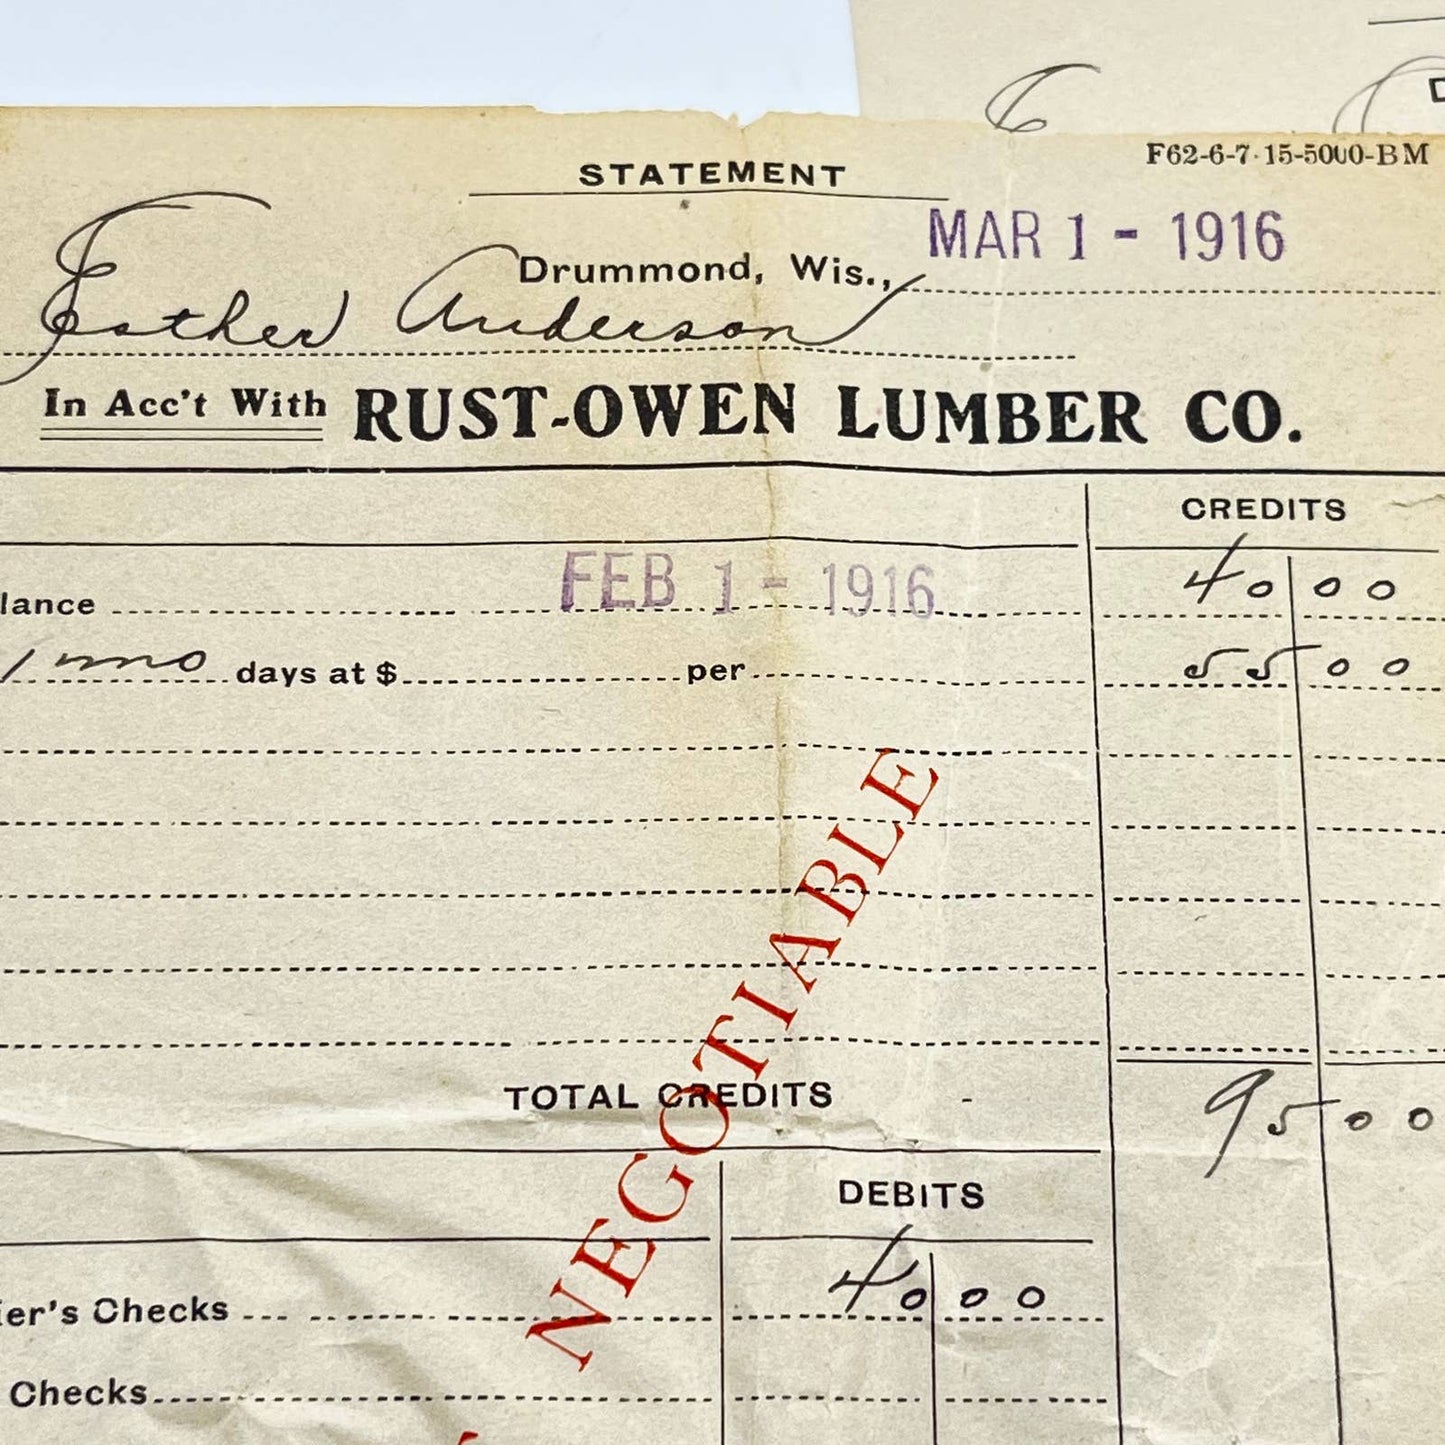 STATEMENT
F62-6-7-15-5000-BM
Drummond, Wis., MAR 1 - 1916
Esther Anderson
In Acc't With RUST-OWEN LUMBER CO.
CREDITS
lance FEB 1 - 1916 40 00
1 mo days at $ per 55 00
NEGOTIABLE
TOTAL CREDITS - 95 00
DEBITS
ier's Checks 40 00
Checks